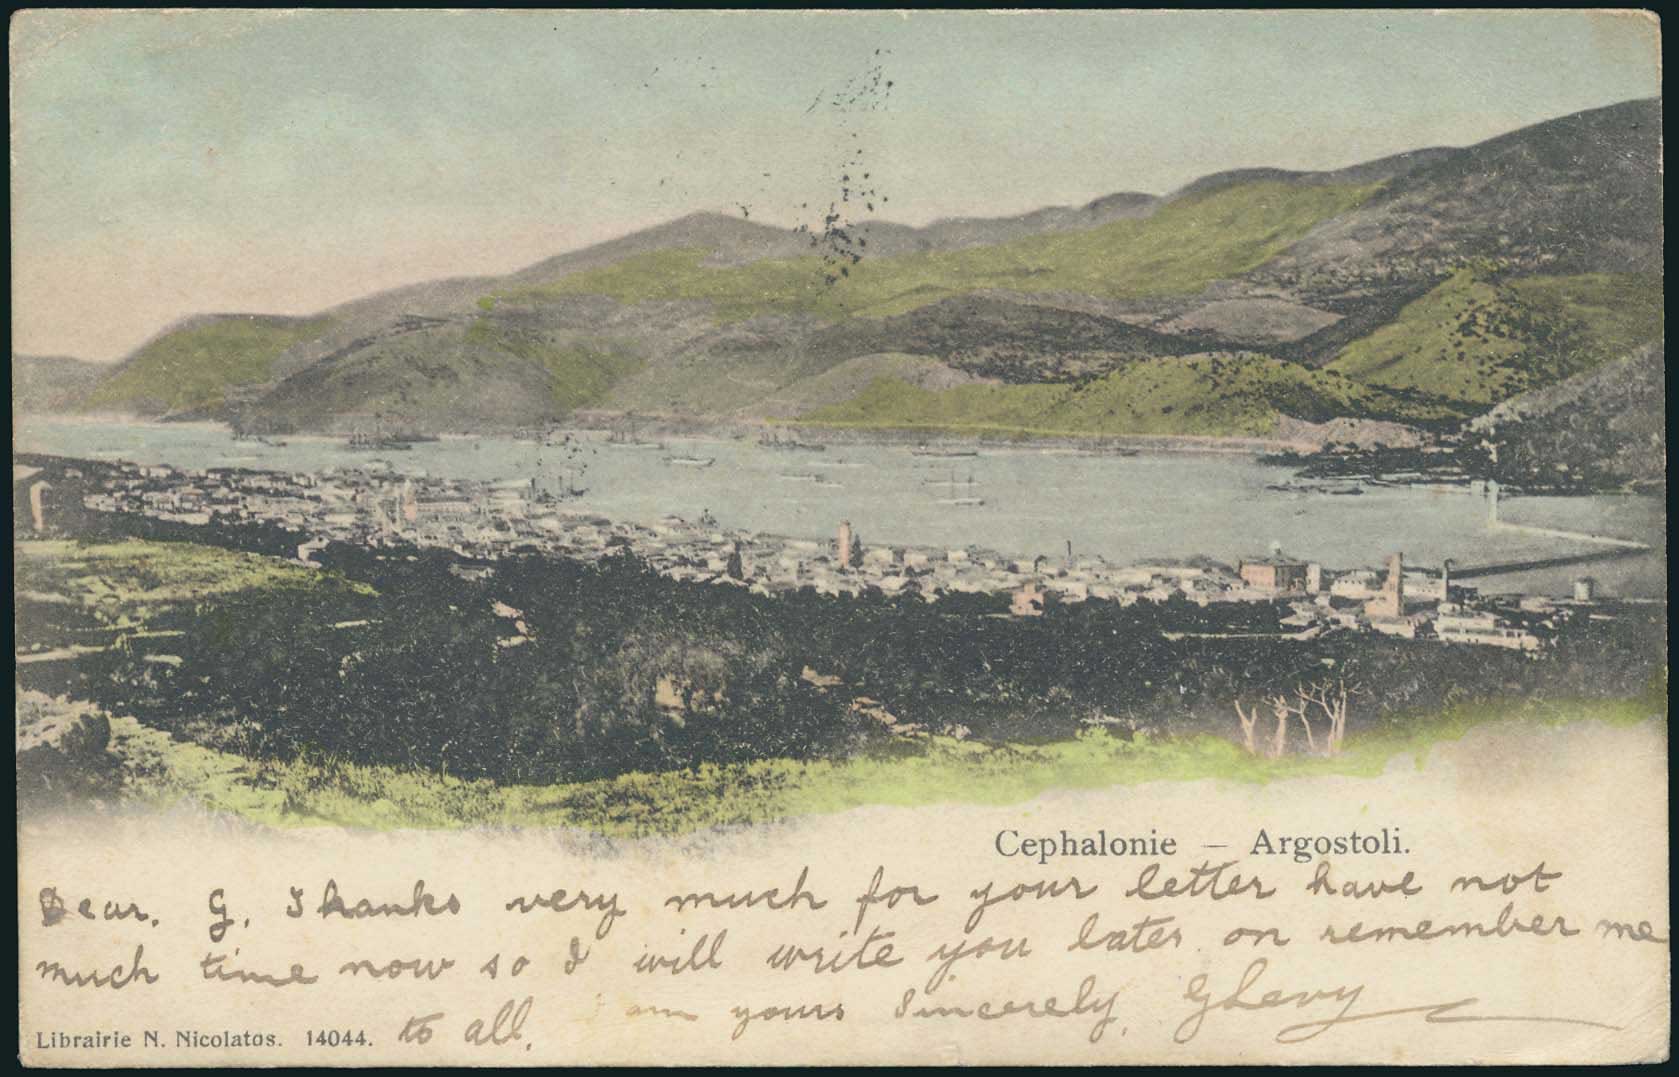 Cephalonie — Argostoli.
Dear. G. Thanks very much for your letter have not
much time now so I will write you later on remember me
to all. I am yours Sincerely, GLevy
Librairie N. Nicolatos. 14044.